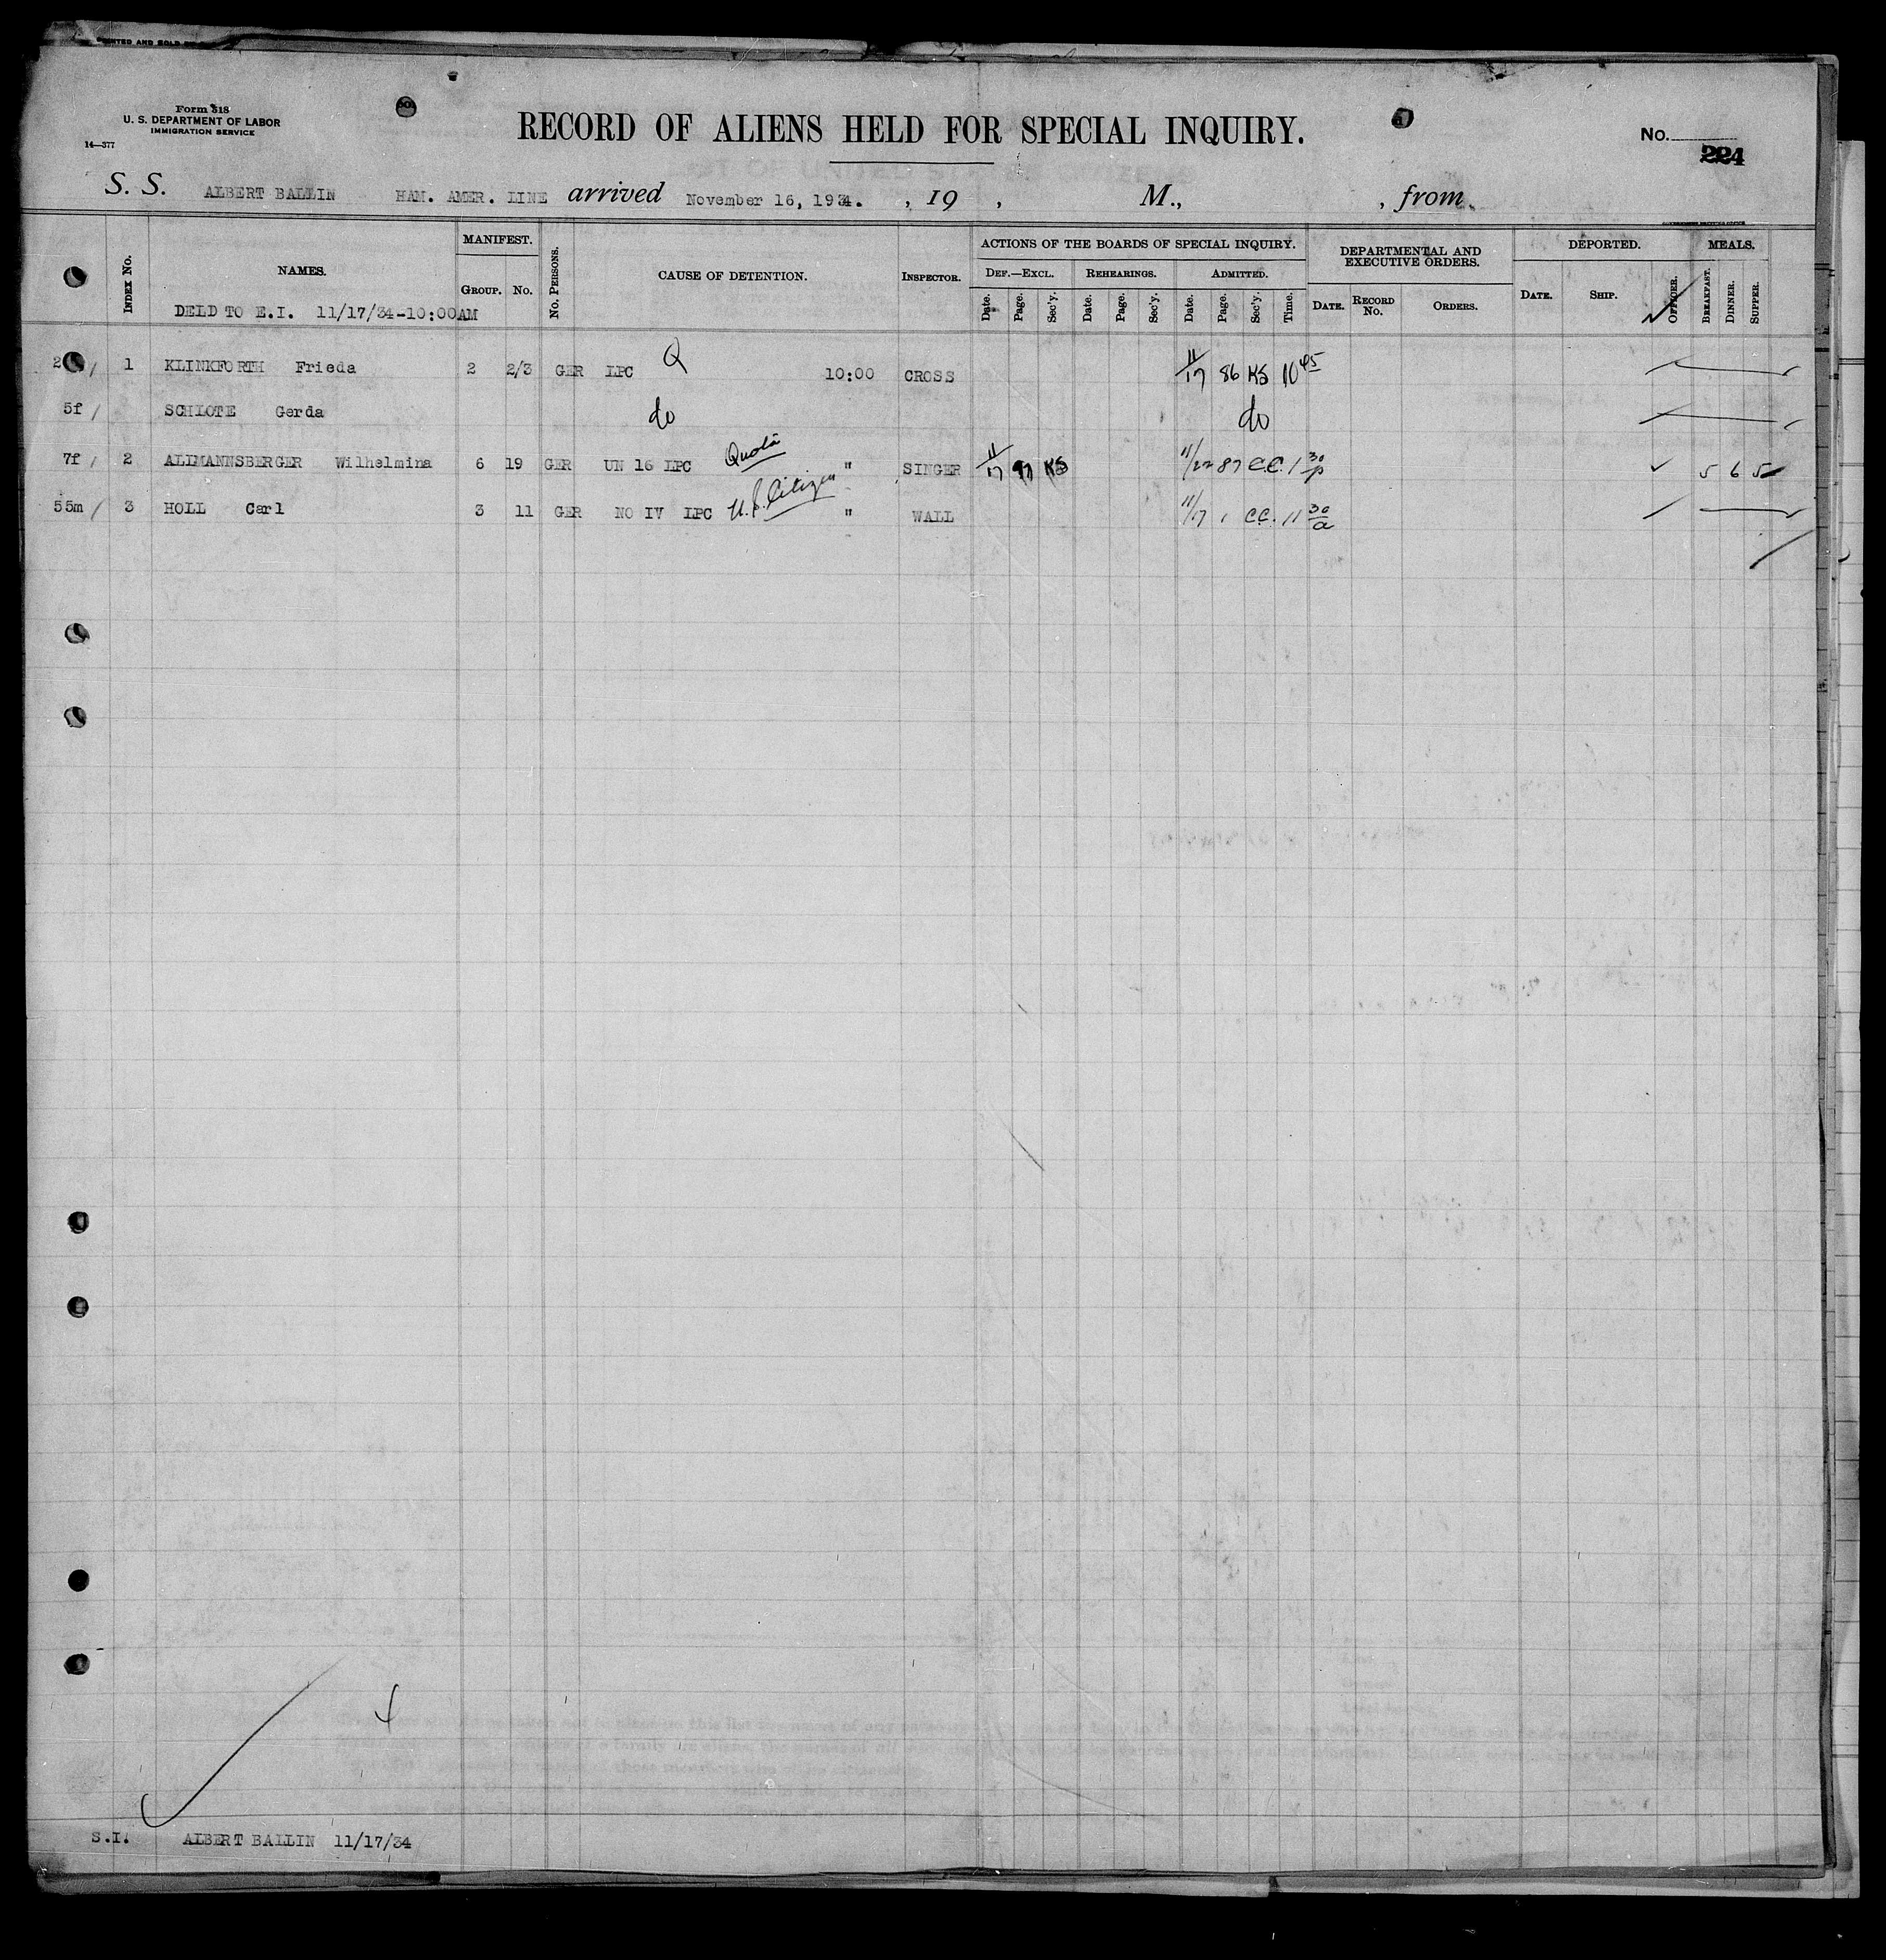 Form 518
U. S. DEPARTMENT OF LABOR
IMMIGRATION SERVICE
14—377
RECORD OF ALIENS HELD FOR SPECIAL INQUIRY.
No. 224
S. S. ALBERT BALLIN HAM. AMER. LINE arrived November 16, 1934. , 19 , M., , from
INDEX No. NAMES. MANIFEST. GROUP. No. No. PERSONS. CAUSE OF DETENTION. INSPECTOR. ACTIONS OF THE BOARDS OF SPECIAL INQUIRY. DEPARTMENTAL AND EXECUTIVE ORDERS. DEPORTED. MEALS.
DEF.—EXCL. REHEARINGS. ADMITTED.
Date. Page. Sec'y. Date. Page. Sec'y. Date. Page. Sec'y. Time. DATE. RECORD No. ORDERS. DATE. SHIP. OFFICER. BREAKFAST. DINNER. SUPPER.
DELD TO E.I. 11/17/34-10:00AM
1 KLINKFORTH Frieda 2 2/3 GER LPC Q 10:00 CROSS 11/17 86 KS 10 45
5f SCHLOTE Gerda do do
7f 2 ALLMANNSBERGER Wilhelmina 6 19 GER UN 16 LPC Quota " SINGER 11/17 97 KS 11/22 87 C.C. 1 30/p 5 6 5
55m 3 HOLL Carl 3 11 GER NO IV LPC U.S. Citizen " WALL 11/17 1 C.C. 11 30/a
S.I. ALBERT BALLIN 11/17/34